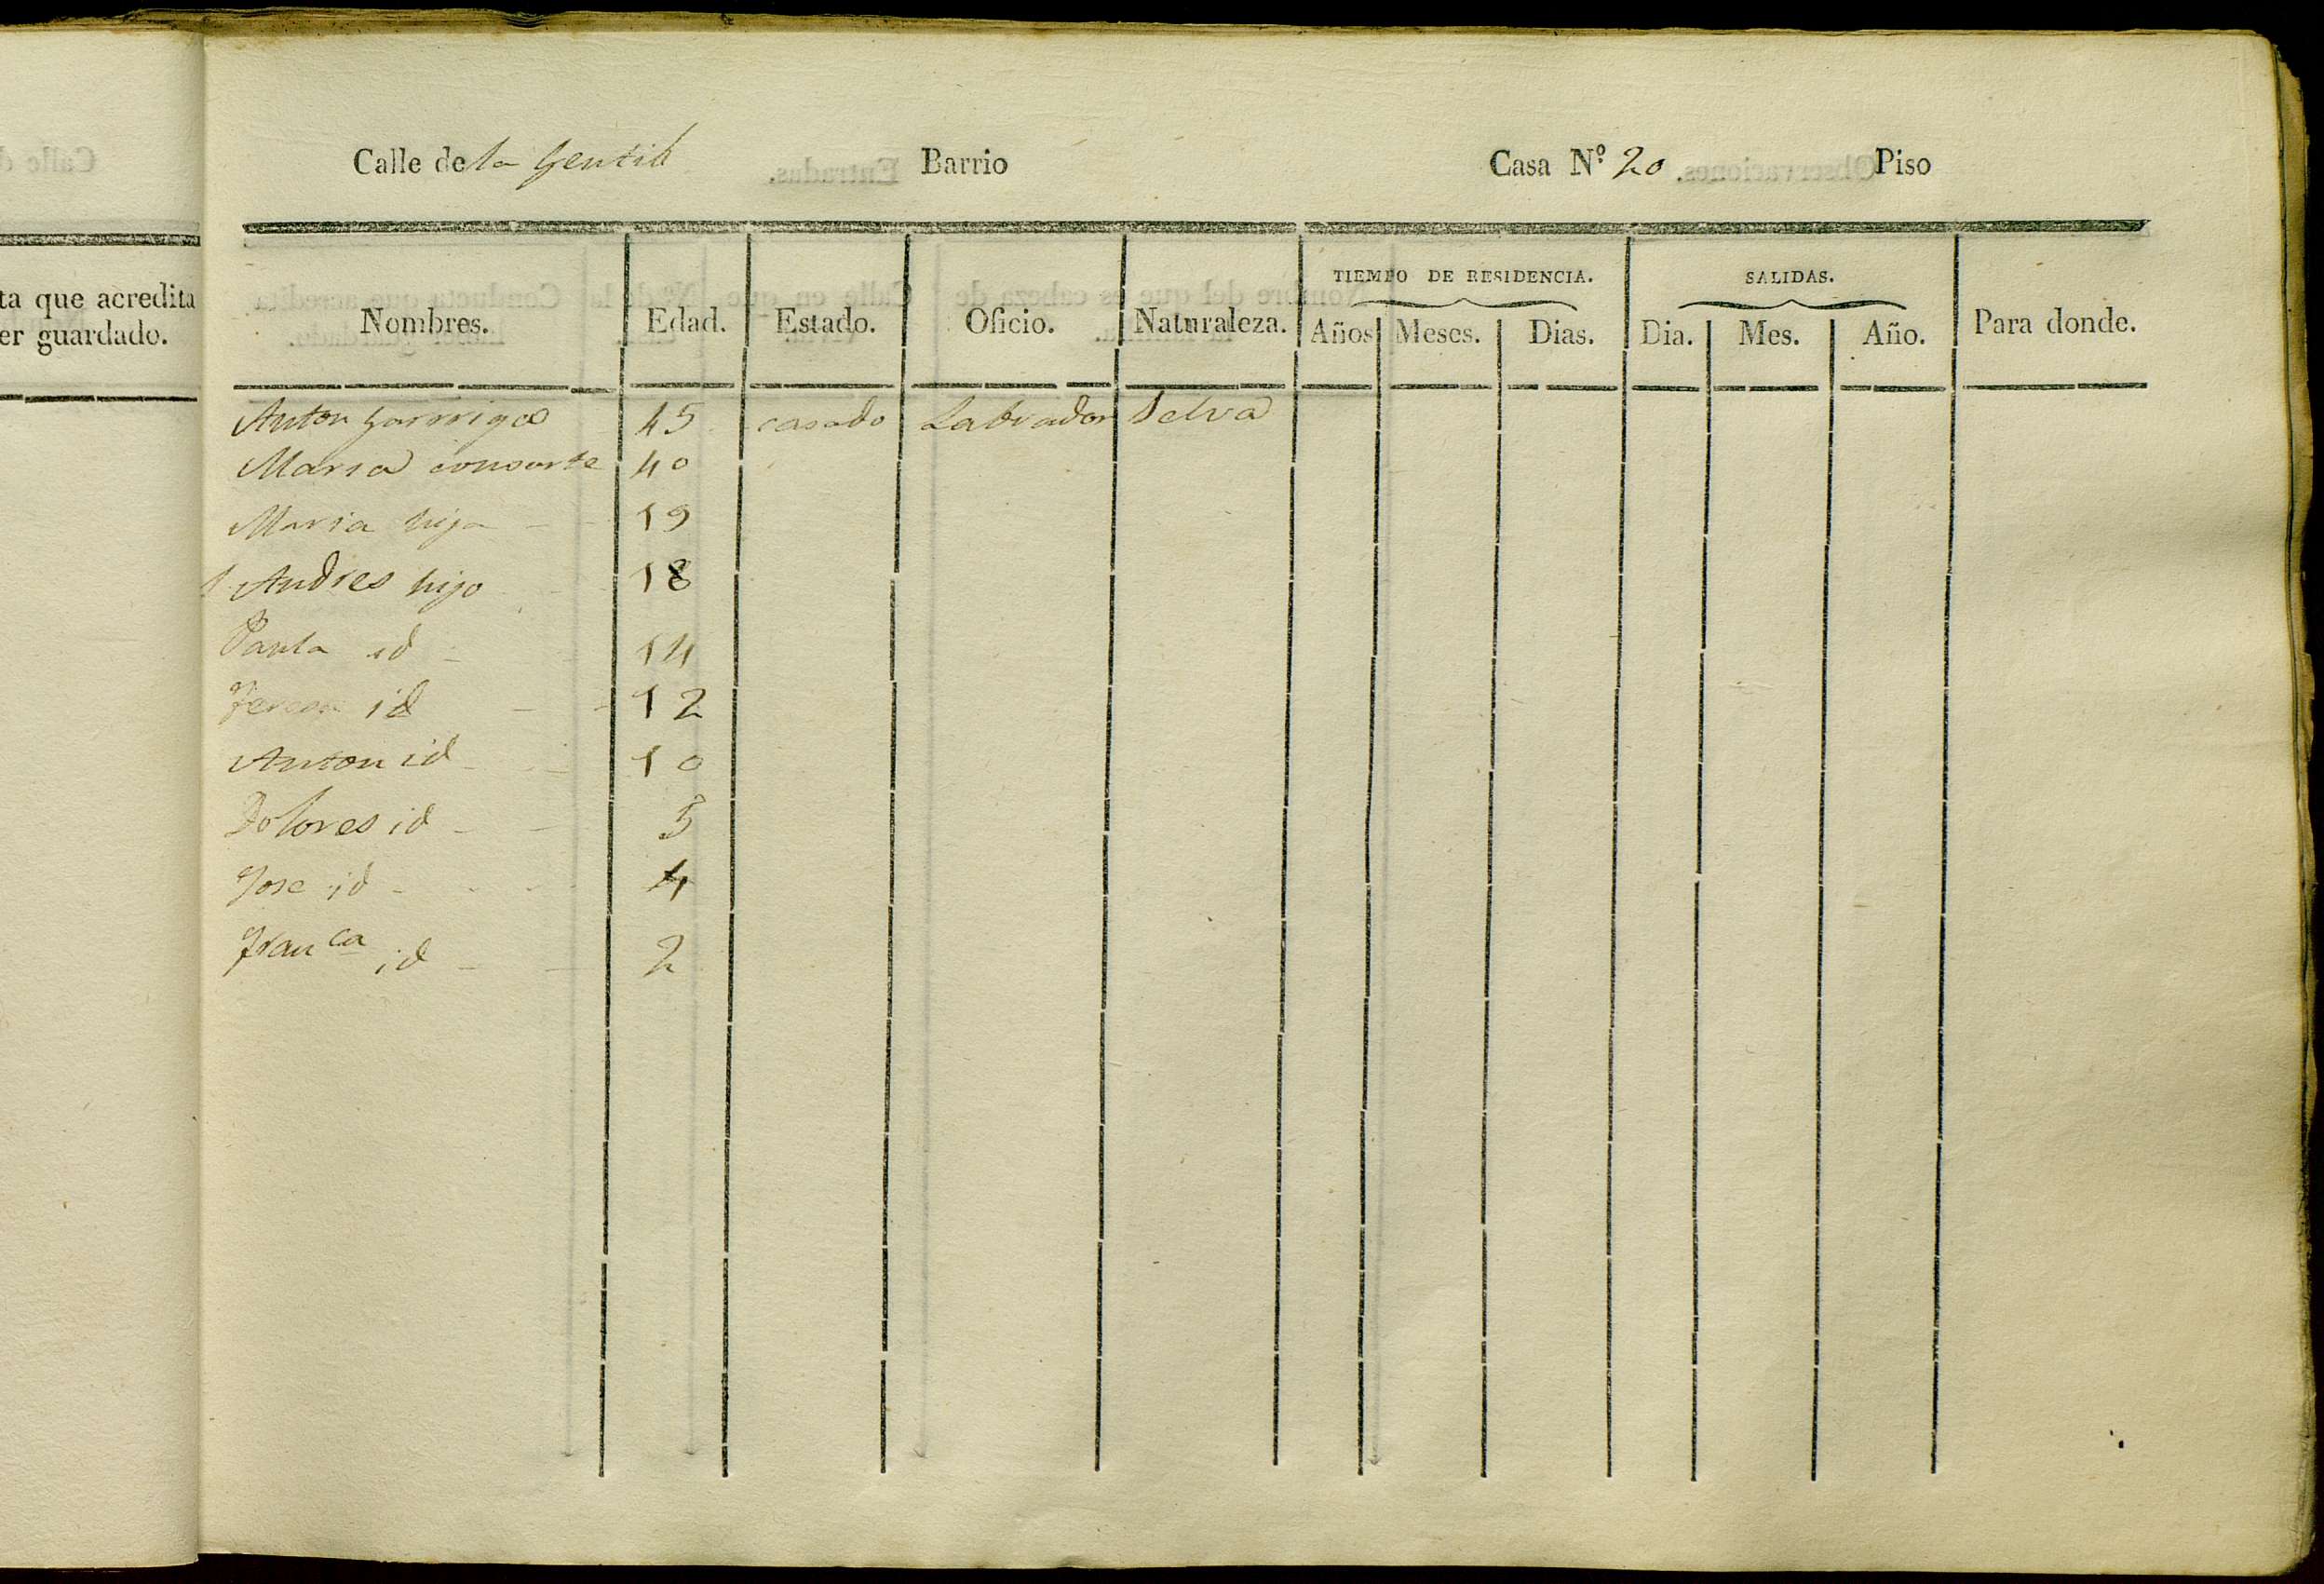 ta que acredita
er guardado.
Calle de la Gentil Barrio Casa Nº 20 Piso
TIEMPO DE RESIDENCIA. SALIDAS.
Nombres. Edad. Estado. Oficio. Naturaleza. Años Meses. Dias. Dia. Mes. Año. Para donde.
Anton Garriga 45 casado Labrador Selva
Maria consorte 40
Maria hija 19
Andres hijo 18
Paula id 14
Teresa id 12
Anton id 10
Dolores id 5
Jose id 4
Franca id 2